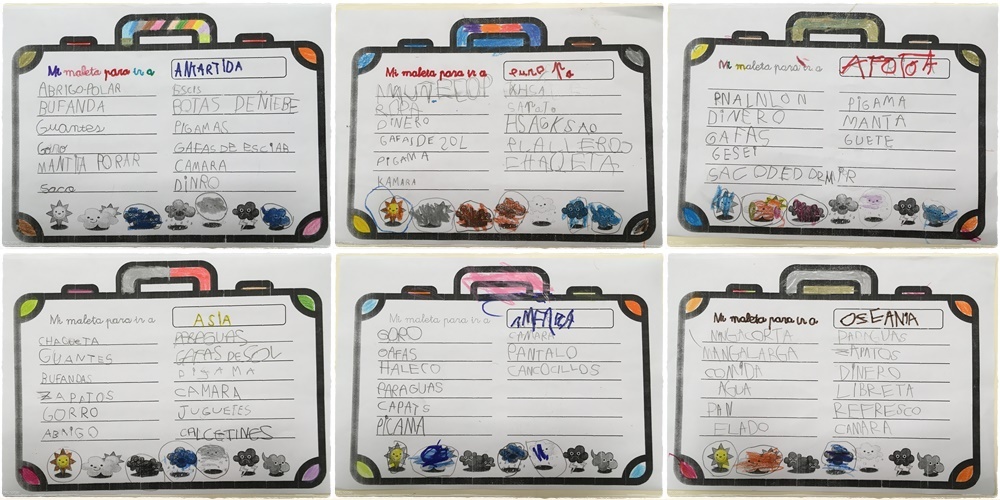 Mi maleta para ir a ANTARTIDA
ABRIGO POLAR
BUFANDA
Guantes
Goro
MANTTA PORAR
saco
Escis
BOTAS DE ÑIEBE
PIGAMAS
GAFAS DE ESCIAR
CAMARA
DINRO
Mi maleta para ir a euro
ROPA
DINERO
GAFAS DE ZOL
PIGAMA
KAMARA
SAPATO
PLALLEROS
CHAQETA
Mi maleta para ir a
DINERO
GAFAS
GESEI
SAC DDED DRMIR
PIGAMA
MANTA
GUETE
Mi maleta para ir a ASIA
CHAQUETA
GUANTES
BUFANDAS
ZAPATOS
GORRO
ABRIGO
PARAGUAS
GAFAS DE SOL
PIJAMA
CAMARA
JUGUETES
CALCETINES
Mi maleta para ir a
GORO
GAFAS
HALECO
PARAGUAS
CAPATS
PICAMA
CAMARA
PANTALO
CANCOCILLOS
Mi maleta para ir a OSEANIA
MANGACORTA
MANGALARGA
COMIDA
AGUA
PAN
ELADO
PARAGUAS
DINERO
LIBRETA
REFRESCO
CAMARA